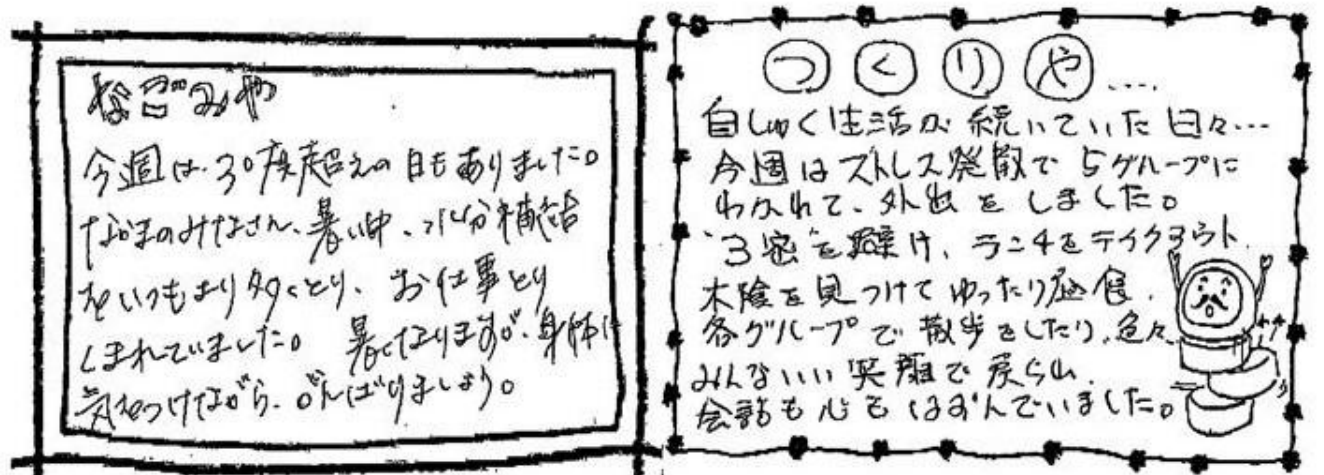 なごみや
今週は、30度超えの日もありました。
なかまのみなさん、暑い中、水分補給
をいつもより多くとり、お仕事とり
くまれていました。 暑くなりますが、身体に
気をつけながら、がんばりましょう。
つくりや....
自しゅく生活が続いていた日々…
今週はストレス発散で5グループに
わかれて、外出をしました。
"3密"を避け、ランチをテイクアウト、
木陰を見つけてゆったり昼食、
各グループで散歩をしたり、色々、
みんないい笑顔で戻られ、
会話も心もはずんでいました。